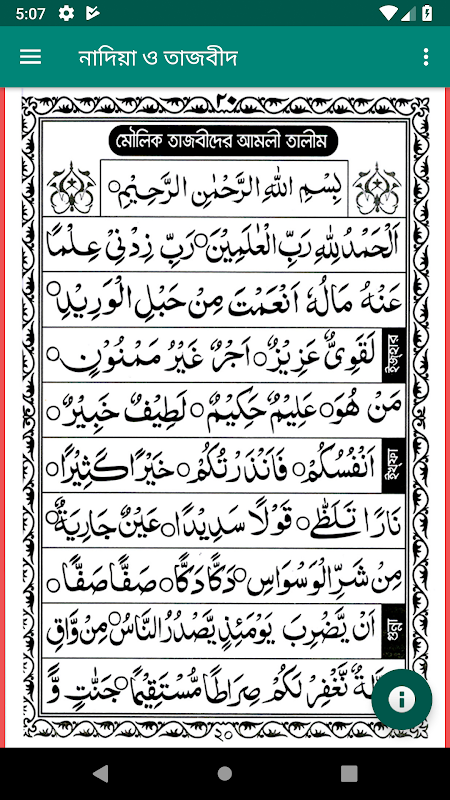 5:07
নাদিয়া ও তাজবীদ
٢٠
মৌলিক তাজবীদের আমলী তালীম
بِسْمِ اللهِ الرَّحْمٰنِ الرَّحِيْمِ○
اَلْحَمْدُ لِلّٰهِ رَبِّ الْعٰلَمِيْنَ○ رَبِّ زِدْنِيْ عِلْمًا
عَنْهُ مَالُهٗ اَنْعَمْتَ مِنْ حَبْلِ الْوَرِيْدِ○
ইজহার
لَقَوِيٌّ عَزِيْزٌ○ اَجْرٌ غَيْرُ مَمْنُوْنٍ○
مَنْ هُوَ○ عَلِيْمٌ حَكِيْمٌ○ لَطِيْفٌ خَبِيْرٌ○
ইখফা
اَنْفُسُكُمْ○ فَاَنْذَرْتُكُمْ○ خَيْرًا كَثِيْرًا○
نَارًا تَلَظّٰى○ قَوْلًا سَدِيْدًا○ عَيْنٌ جَارِيَةٌ○
مِنْ شَرِّ الْوَسْوَاسِ○ دَكًّا دَكًّا○ صَفًّا صَفًّا○
গুন্না
اَنْ يَّضْرِبَ يَوْمَئِذٍ يَّصْدُرُ النَّاسُ○ مِنْ وَّاقٍ
نَّغْفِرْ لَكُمْ صِرَاطًا مُّسْتَقِيْمًا○ جَنّٰتٍ وَّ
২০